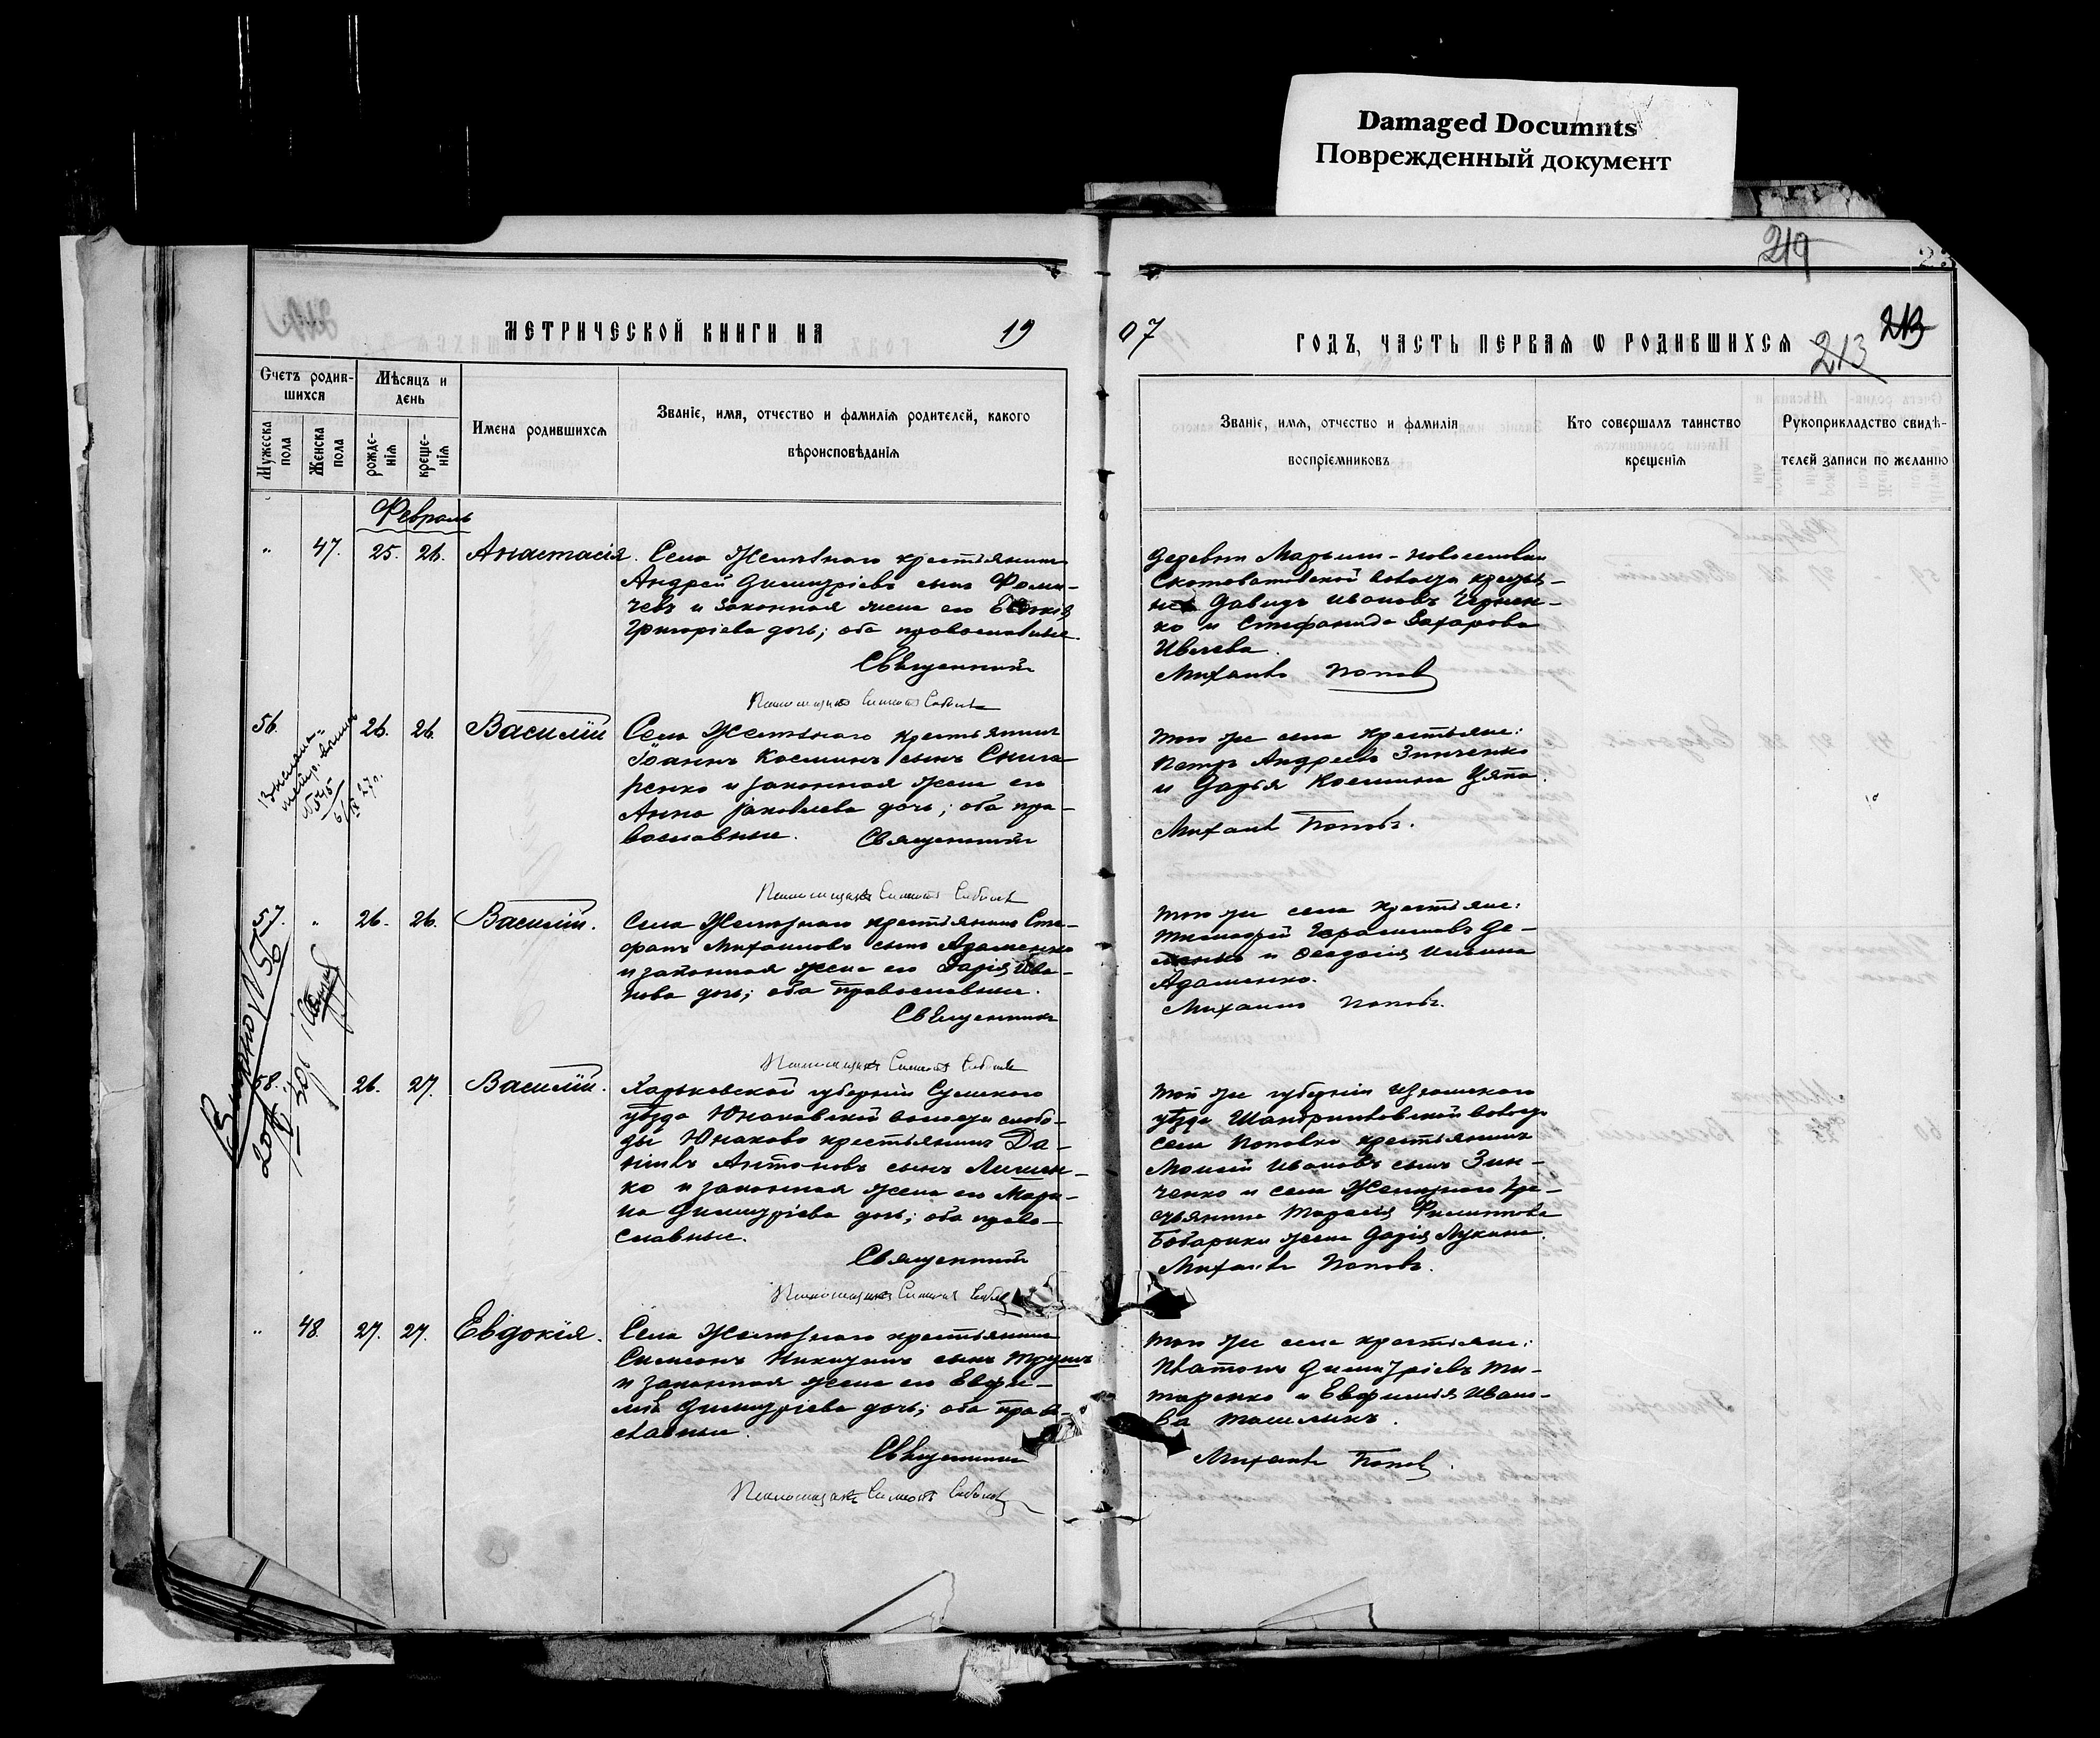 Damaged Documnts
Поврежденный документ
219
МЕТРИЧЕСКОЙ КНИГИ НА 19
07 ГОДЪ, ЧАСТЬ ПЕРВАЯ Ѡ РОДИВШИХСЯ
213
213
Счетъ родив-
шихся
Мужеска пола
Женска пола
Мѣсяцъ и
день
рожде-
нія
креще-
нія
Имена родившихся
Званіе, имя, отчество и фамилія родителей, какого
вѣроисповѣданія
Званіе, имя, отчество и фамилія
воспріемниковъ
Кто совершалъ таинство
крещенія
Рукоприкладство свидѣ-
телей записи по желанію
Февраль
" 47. 25. 26. Анастасія.
Села Желѣзнаго крестьянинъ
Андрей Димитріевъ сынъ Фоми-
чевъ и законная жена его
Григоріева дочь; оба православные.
Священникъ
Псаломщикъ Симеонъ
Деревни
волости крестья-
Давидъ Ивановъ Чернен-
ко и Стефанида Захарова
Ивлева.
Михаилъ Поповъ
56. 26. 26. Василій
Села Желѣзнаго крестьянинъ
Іоаннъ Косминъ сынъ Снига-
ренко и законная жена его
Анна Іаковлева дочь; оба пра-
вославные. Священникъ
Псаломщикъ Симеонъ
Того же села крестьяне:
Петръ Андреевъ Зинченко
и Дарья Космина Цяпа.
Михаилъ Поповъ.
57. " 26. 26. Василій.
Села Желѣзнаго крестьянинъ Сте-
фанъ Михаиловъ сынъ Адаменко
и законная жена его Дарія Ива-
нова дочь; оба православные.
Священникъ
Псаломщикъ Симеонъ
Того же села крестьяне:
Тимофей Герасимовъ Де-
и Ѳеодосія
Адаменко.
Михаилъ Поповъ.
58. 26. 27. Василій.
Харьковской губерніи Сумскаго
уѣзда Юнаковской волости слобо-
ды Юнаковки крестьянинъ Да-
ніилъ Антоновъ сынъ
ко и законная жена его Мари-
на Димитріева дочь; оба право-
славные.
Священникъ
Псаломщикъ Симеонъ
Той же губерніи Изюмскаго
уѣзда волости
села Поповки крестьянинъ
Моисей Ивановъ сынъ Зин-
ченко и села Желѣзнаго кре-
стьянина Тарасія Филиппова
Бабарики жена Дарія Лукина.
Михаилъ Поповъ.
" 48. 27. 27. Евдокія.
Села Желѣзнаго крестьянинъ
Симеонъ Никитинъ сынъ
и законная жена его Евфи-
мія Димитріева дочь; оба право-
славные.
Священникъ
Псаломщикъ Симеонъ
Того же села крестьяне:
Платонъ Димитріевъ Ти-
таренко и Евфимія Ивано-
ва
Михаилъ Поповъ.